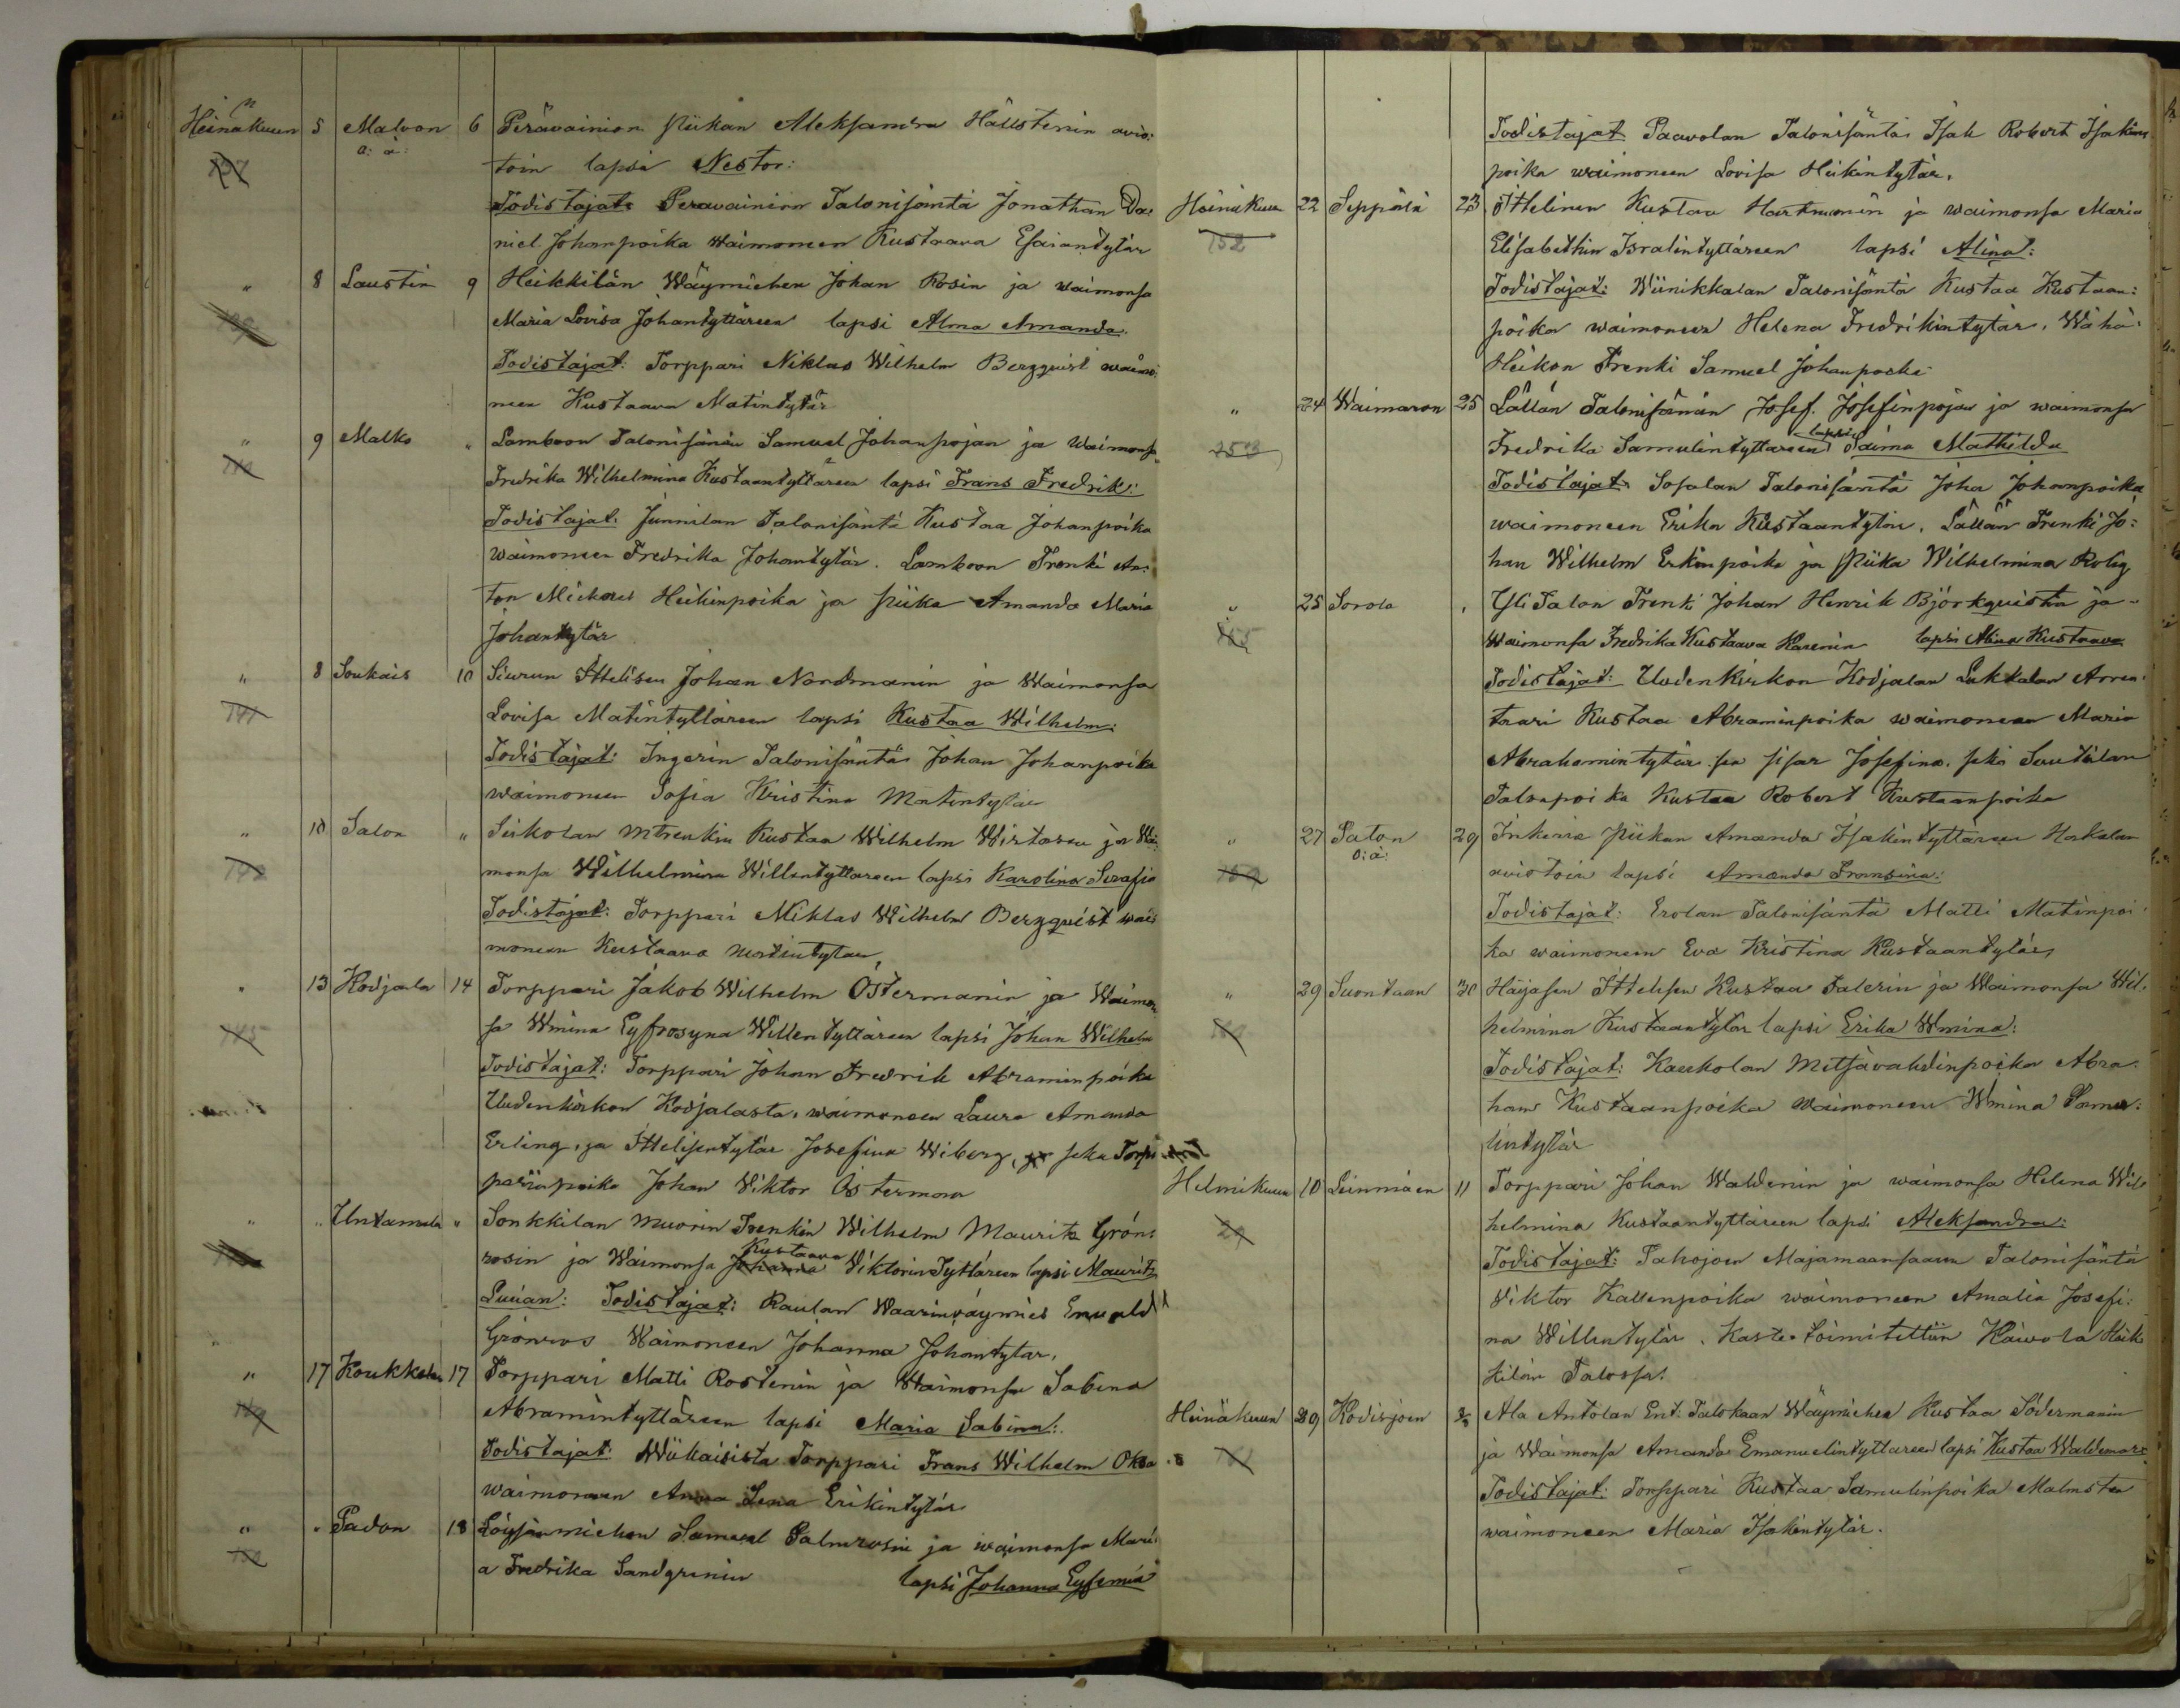 Heinäkuun 5 Malvon 6 Peräwainion Piikan Aleksandra Hällstenin avio:
a: ä:
toin lapsi Nestor:
Todistajat: Perawainion Talonisäntä Jonathan Da:
niel Johanpoika Waimoneen Kustaava Esaiantytär
" 8 Laustin 9 Heikkilän Wäymichen Johan Rosin ja waimonsa
Maria Lovisa Johantyttäreen lapsi Alma Amanda.
Todistajat: Torppari Niklas Wilhelm Bergquist waimo:
neen Kustaava Matintytär
" 9 Malko " Lamboon Talonisänän Samuel Johanpojan ja Waimonsa
Fredrika Wilhelmina Kustaantyttäreen lapsi Frans Fredrik:
Todistajat: Junnilan Talonisäntä Kustaa Johanpoika
Waimoneen Fredrika Johantytär. Lamboon Trenki An:
ton Mickael Heikinpoika ja Piika Amanda Maria
Johantytär
" 8 Soukais 10 Siurun Ittelisen Johan Nordmanin ja Waimonsa
141
Lovisa Matintyttäreen lapsi Kustaa Wilhelm:
Todistajat: Ingerin Talonisäntä Johan Johanpoika
waimoneen Sofia Kristina Matintytär
" 10 Salon " Sirkolan Mtrenkin Kustaa Wilhelm Wirtasen ja Wai:
142
monsa Wilhelmina Willentyttareen lapsi Karolina Serafia
Todistajat: Torppari Niklas Wilhelm Bergquist wai
moneen Kustaava Matintytär,
" 13 Kodjala 14 Torppari Jakob Wilhelm Östermanin ja Waimon
145
sa Wmina Eyfrosyna Willentyttäreen lapsi Johan Wilhelm
Todistajat: Torppari Johan Fredrik Abraminpoika
Uudenkirkon Kodjalasta, waimoneen Laura Amanda
Erling, ja Ittelisentytär Josefina Wiberg, seka Torp:
parinpoika Johan Viktor Österman
" " Untamala " Sonkkilan Muorin Trenkin Wilhelm Maurits Grön:
rosin ja Waimonsa Johanna Kustaava Viktorin Tyttäreen lapsi Maurits
Lucian: Todistajat: Raulan Waarinväymies Enwald
Grönroos Waimoneen Johanna Johantytar,
" 17 Koukkelan 17 Torppari Matti Rostenin ja Waimonsa Sabina
149
Abramintyttäreen lapsi Maria Sabina:
Todistajat: Wiikaisista Torppari Frans Wilhelm Oksa
waimoneen Anna Lena Erikintytär
" " Padon 18 Löysänmichen Samuel Palmrosin ja waimonsa Mari:
a Fredrika Sandgrenin lapsi Johanna Eyfemia
Todistajat Paavolan Talonisäntä Isak Robert Isakin
poika waimoneen Lovisa Heikintytär,
Heinäkuun 22 Seppälä 23 Ittelinen Kustaa Hartmanin ja waimonsa Maria
152
Elisabethin Isralintyttäreen lapsi Alina:
Todistajat: Wiinikkalan Talonisäntä Kustaa Kustaan:
poika waimoneen Helena Fredrikintytär, Wähä:
Heikon Trenki Samuel Johanpoika
" 24 Waimaron 25 Lällän Talonisänän Josef Josefinpojan ja waimonsa
Fredrika Samulintyttareen lapsi Saima Mathilda
Todistajat: Sosalan Talonisäntä Joha Johanpoika
waimoneen Erika Kustaantytär, Lällän Trenki Jo:
han Wilhelm Erkinpoika ja Piika Wilhelmina Rolig
" 25 Sorola " Yli Talon Trenki Johan Henrik Björkquistin ja
Waimonsa Fredrika Kustaava Karenin lapsi Alina Kustaava
Todistajat: Uudenkirkon Kodjalan Lukkalan Arren:
taari Kustaa Abraminpoika waimoneen Maria
Abrahamintytär ja sisar Josefina, seka Suutilan
Talonpoika Kustaa Robert Kustaanpoika
" 27 Paton 29 Inkerin Piikan Amanda Isakintyttäreen Hakalan
o: ä:
aviotoin lapsi Amanda Fransina:
Todistajat: Erolan Talonisäntä Matti Matinpoi:
ka waimoneen Eva Kristina Kustaantytär,
" 29 Suontaan 30 Häyasen Ittelisen Kustaa Salerin ja Waimonsa Wil:
helmina Kustaantytär lapsi Erika Wmina:
Todistajat: Kaukolan Metsävahdinpoika Abra:
ham Kustaanpoika Waimoneen Wmina Samu:
lintytär
Helmikuun 10 Leinmäen 11 Torppari Johan Waldenin ja waimonsa Helena Wil
29
helmina Kustaantyttäreen lapsi Aleksandra:
Todistajat: Pahojoen Majamaansaaren Talonisäntä
Viktor Kallenpoika waimoneen Amalia Josefi:
na Willentytär. Kaste toimitettiin Kaivola Heik
kilän Talossa.
Heinäkuun 29 Kodisjoen Ala Antolan Ent. Talokaan Wäymichen Kustaa Södermanin
ja Waimonsa Amanda Emanuelintyttareen lapsi Kustaa Waldemar:
Todistajat: Torppari Kustaa Samulinpoika Malmsten
waimoneen Maria Isakintytär.